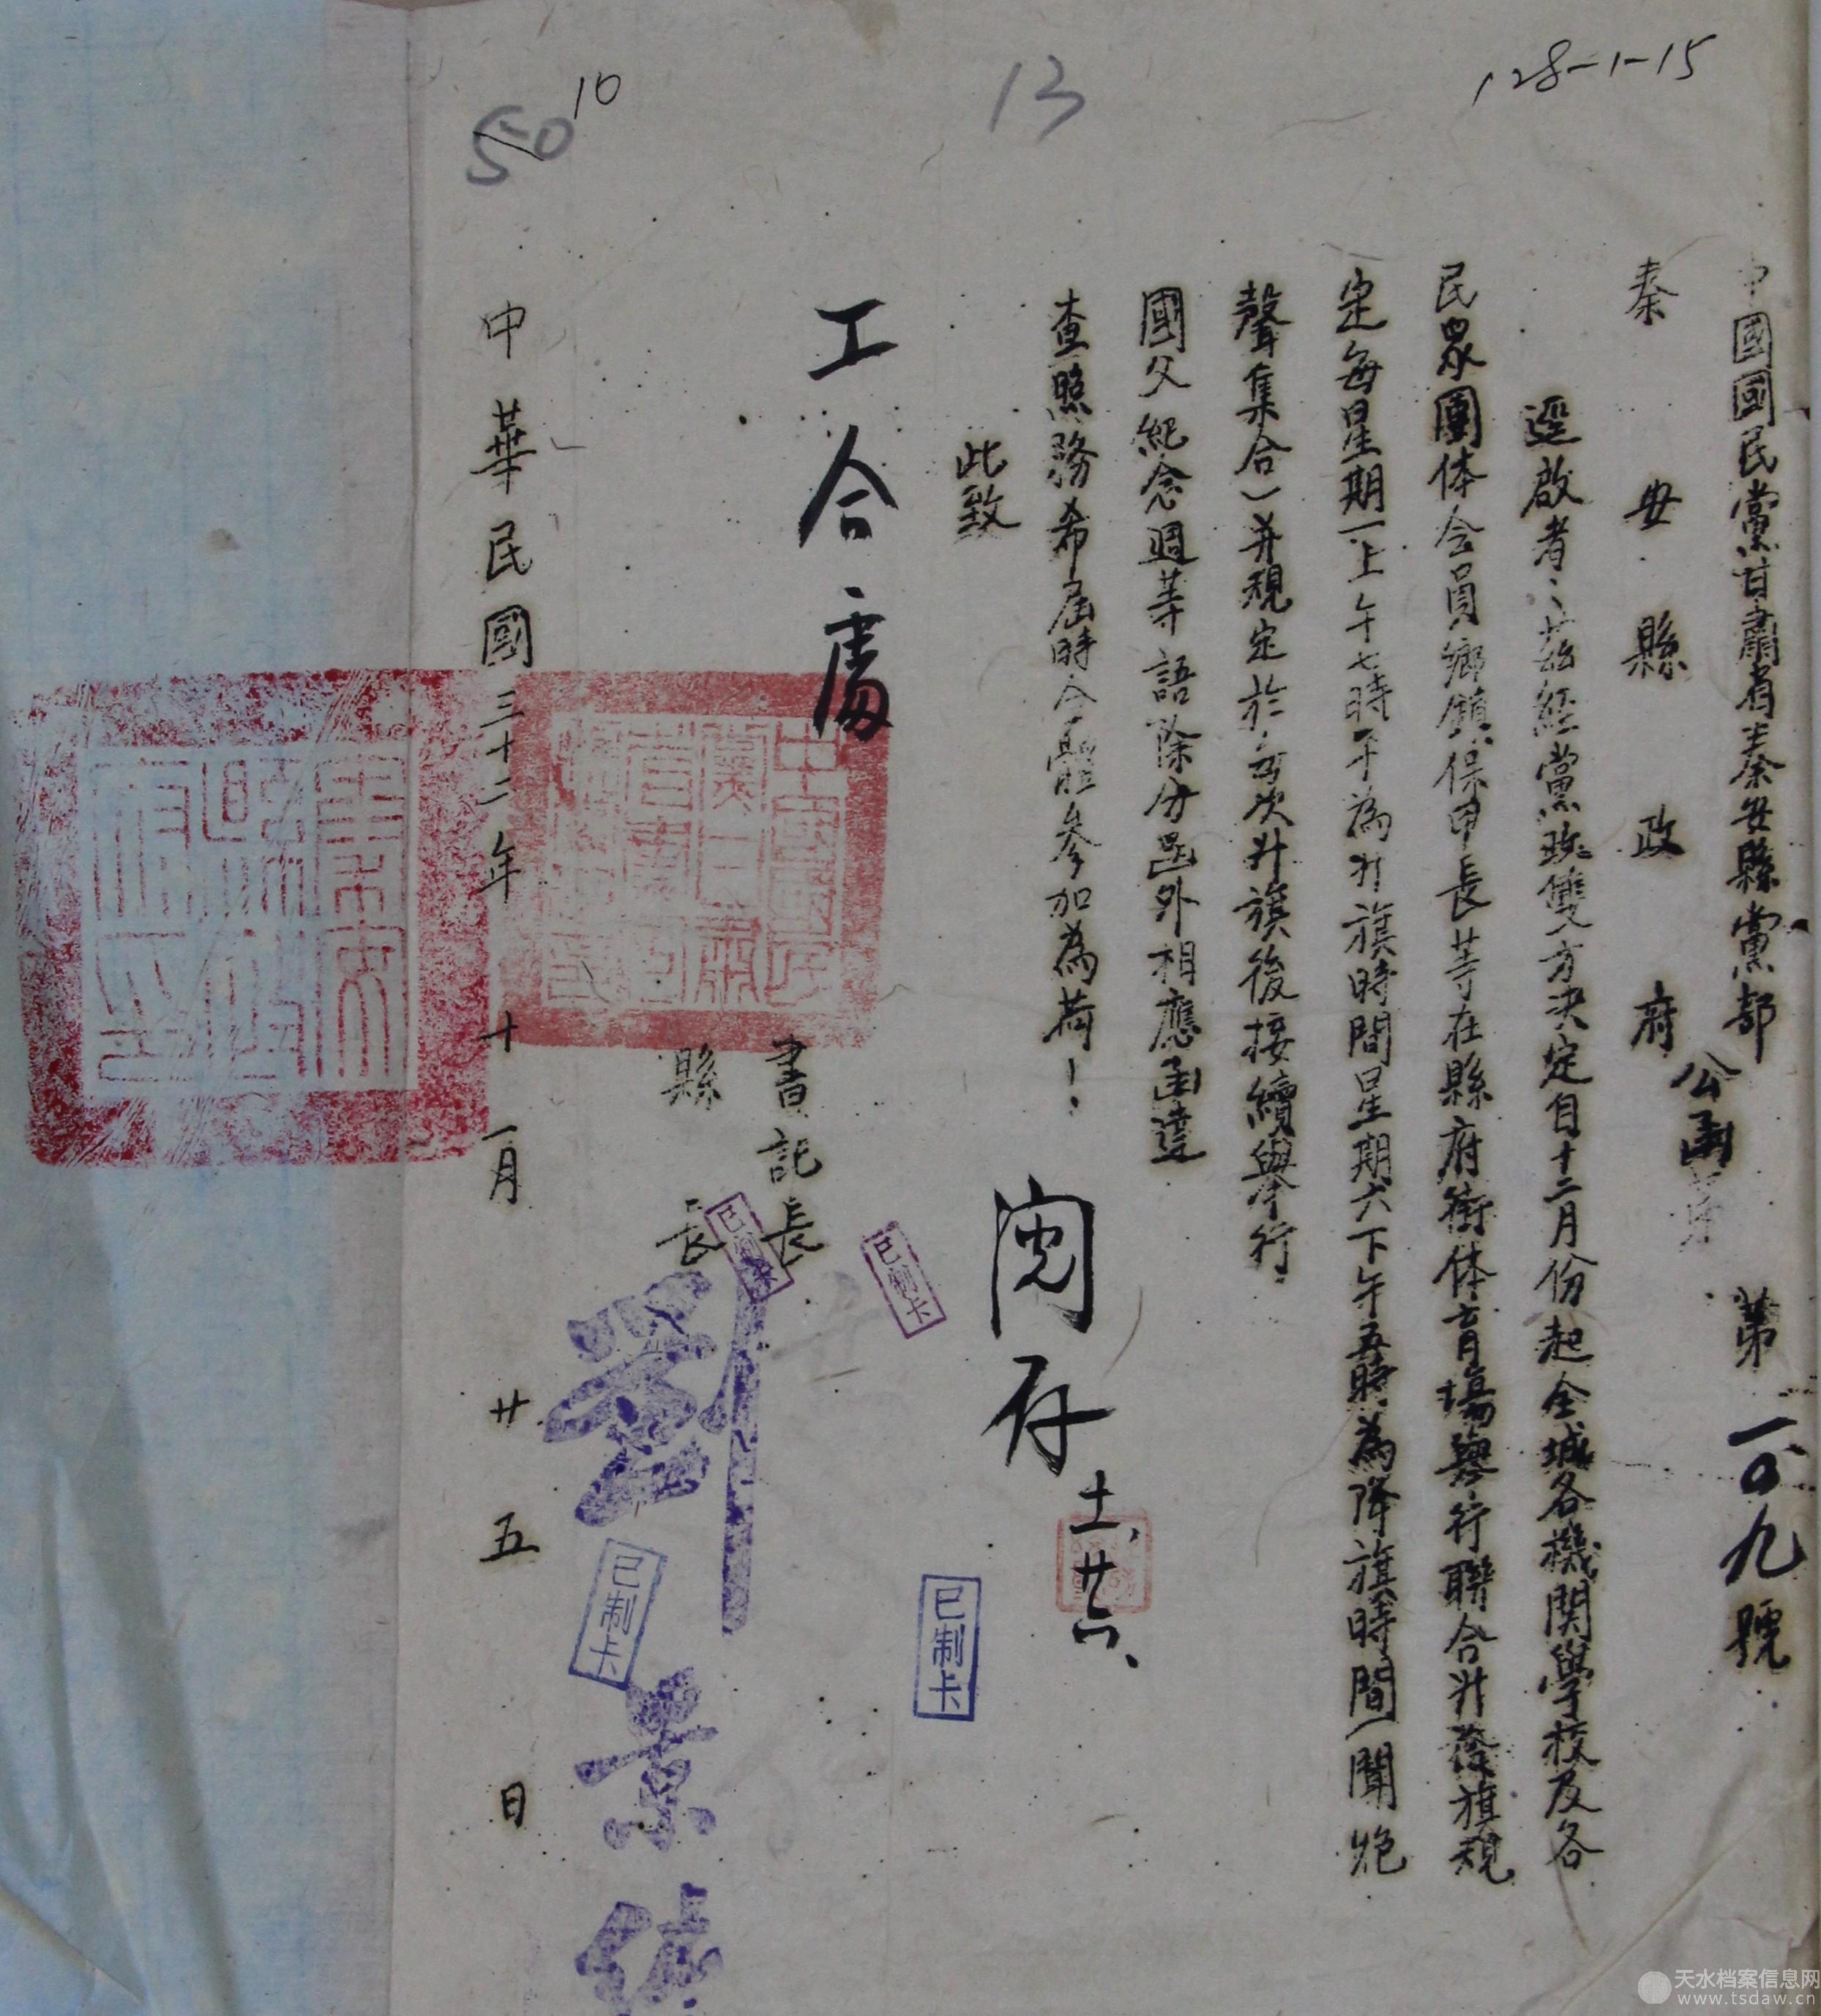 128-1-15
13
50
10
中國國民黨甘肅省秦安縣黨部
秦安縣政府
公函
第一〇九號
逕啟者、茲經黨政雙方決定自十二月份起全城各機関學校及各
民眾團体会員鄉鎮保甲長等在縣府街体育場舉行聯合升降旗規
定每星期一上午七時半為升旗時間星期六下午五時為降旗時間(聞炮
聲集合)并規定於每次升旗後接續舉行
國父紀念週等語除分函外相應函達
查照務希屆時全體參加為荷！
此致
工合處
閱存
十一、廿六、
書記長
縣長
劉景
中華民國三十二年十一月廿五日
已制卡
已制卡
已制卡
已制卡
秦安縣政府印
天水档案信息网
www.tsdaw.cn